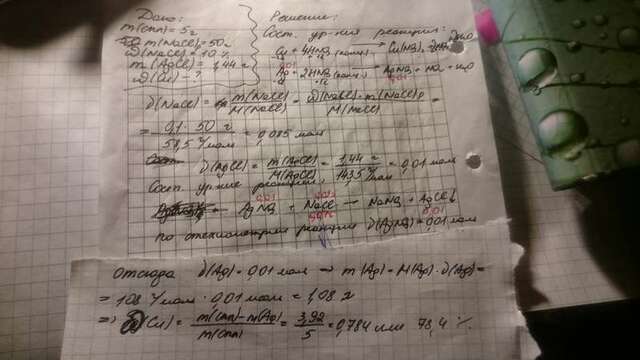 Дано:
m(спл)=5г
m(NaCl)=50г
ω(NaCl)=10%
m(AgCl)=1,44 г
ω(Cu)-?
Решение:
Сост. ур-ния реакции:
Cu + 4HNO₃(конц) → Cu(NO₃)₂ + 2NO₂ + 2H₂O
0,01
Ag + 2HNO₃(конц) → AgNO₃ + NO₂ + H₂O
0,01
ν(NaCl) = m(NaCl)/M(NaCl) = ω(NaCl)·m(NaCl)р/M(NaCl) =
= 0,1·50 г/58,5 г/моль = 0,085 моль
ν(AgCl) = m(AgCl)/M(AgCl) = 1,44 г/143,5 г/моль = 0,01 моль
Сост. ур-ние реакции:
0,01 0,01
AgNO₃ + NaCl → NaNO₃ + AgCl↓
0,01
по стехиометрии реакции ν(AgNO₃)=0,01 моль
отсюда ν(Ag)=0,01 моль ⇒ m(Ag)=M(Ag)·ν(Ag)=
= 108 г/моль · 0,01 моль = 1,08 г
⇒ ω(Cu) = m(спл)-m(Ag)/m(спл) = 3,92/5 = 0,784 или 78,4 %.